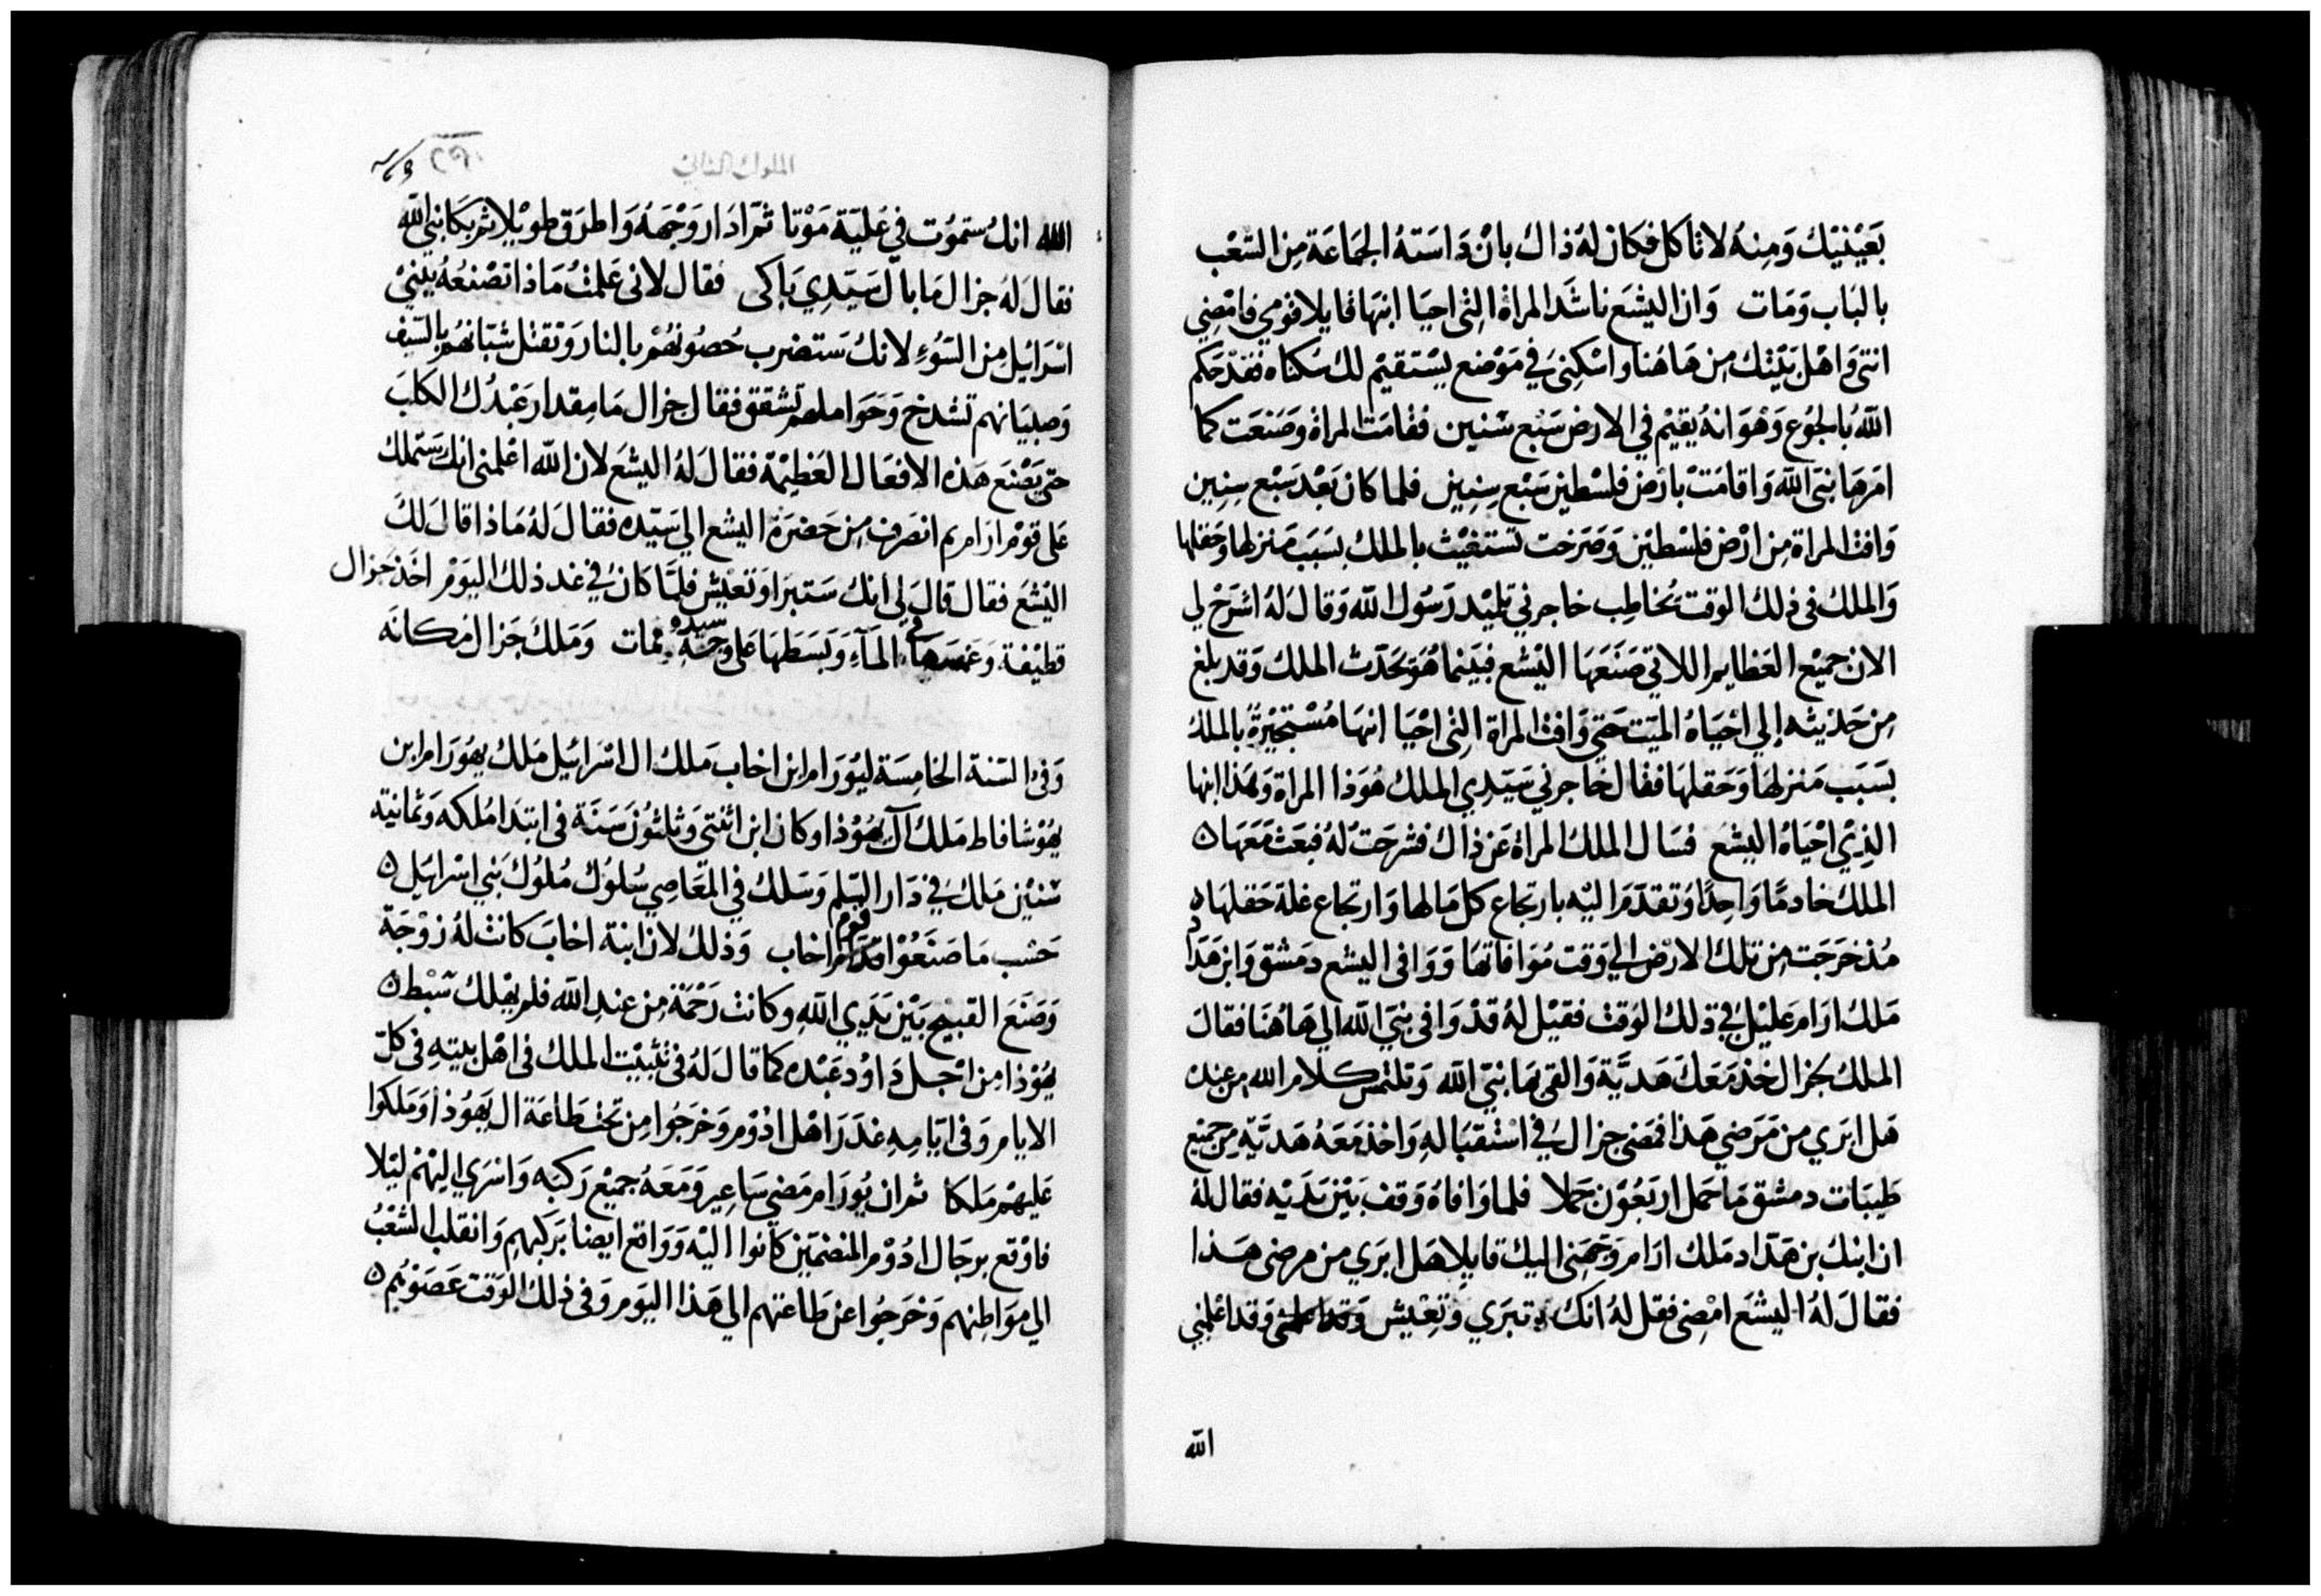 بَعَيْنيْك وَمِنهُ لاتاكل فكَان لهُ ذاك بانْ دَاسَتهُ الجمَاعَة مِن الشعْب
بالبَاب وَمَات وَان اليشَع ناشَد المراة التى احيَا ابنهَا قايلا قومي فامْضِي
انتى وَاهْل بَيْتك مِن هَاهُنا واسْكِنى في مَوْضع يسْتقيْم لك سُكناه فقدْ حَكم
اللّه بالجُوع وَهْوَ انهُ يقيْم في الارض سَبْع سْنين فقامَت المراة وصَنعَت كما
امَرهَا نبيَ اللّه وَاقامَتْ بارْض فلسْطين سَبْع سِنِين فلما كان بَعْد سَبْع سِنِين
وَافت المراة مِن ارْض فلسْطين وَصَرخت تستغيْث بالملك بسَبَب مَنزلها وحَقلها
وَالملك فى ذلك الوقت يُخاطِب خاجرني تلميْد رَسُول اللّه وَقالَ لهُ اشرَحْ لي
الان جميْع العَظايم اللاتي صَنعَهَا اليْشع فبيَنما هُوَ يحَدّث الملك وَقد بلغ
مِن حَديْثه إلي احْيَاهُ الميّت حَتى وَافت المراة التى احْيَا ابنهَا مُسْتجيْرة بالملك
بسَبَب مَنزلها وَحَقلهَا فقال خاجرني سَيّدِي الملك هُوَذا المراة وَهَذا ابنها
الذِيْ احْيَاهُ اليشع فسَال الملك المراة عَن ذاك فشرحَت لهُ فبَعَث مَعَهَا ن
الملك خادمًا وَاحِدًا وَتقدّمَ اليْه بارتجاع كل مَالها وَارتجاع غلة حَقلهَا ن
مُذ خرَجَت مِن تلك الارْض الي وَقت مُوَافاتهَا وَوَافى اليشع دمَشق وَابن هَدَاد
مَلك ارَام عَليْل في ذلك الوَقت فقيْل لهُ قدْ وَافى نبيّ اللّه الي هَاهُنا فقالَ
الملك لجزال خذ مَعَكَ هَديَّة وَالقى بهَا نبيّ اللّه وَتلتمس كلام الله من عنده
هَل ابرَي من مَرَضي هَذا فمَضى جزال في اسْتقبَالهِ وَاخذ مَعَهُ هَديَّة مِن جميْع
طيبَات دمشق مَا حمَل اربَعُوْن جملا فلما وَافاهُ وَقف بَيْن يَدَيْه فقال لهُ
ان ابنك بن هَدَاد مَلك ارَام وَجهَنى اليك قايلا هَل ابرَي من مرضى هَذا
فقالَ لهُ اليشَع امْضِى فقل لهُ انك تبرَي وَتعِيْش وَقد اعلمنى وَقد اعْلمني
اللّه
الملوك الثاني
اللّه انك سَتمُوت في عَليّة مَوْتا ثمّ ادَار وَجْهَهُ وَاطرَق طويْلا ثم بَكا نبيّ اللّه
فقالَ لهُ جزال مَا بالَ سَيّدِي بَاكى فقال لانى عَلمْتُ مَاذا تصْنعُه ببَني
اسْرَائيل مِن السّوُء لانك سَتضرب حُصُونهُمْ بالنار وَتقتل شبّانهُم بالسّيف
وَصبيَانهم تشدخ وَحَوَاملهم تشقق فقال جزال مَا مِقدار عَبْدُك الكلبَ
حَتى يَصْنع هَذه الافعَال العَظِيْمَة فقالَ لهُ اليشَع لان اللّه اعْلمنى انك سَتملك
عَلى قوْم ارَام ثم انصَرف مِن حَضرَة اليشع الي سَيّده فقالَ لهُ مَاذا قالَ لكَ
اليْشعَ فقال قالَ لي انك سَتبرَا وَتعْيش فلمّا كان في غد ذلك اليَوْم اخَذ حَزال
قطيْفة وَغمسَهَا في المَآء وَبَسَطهَا عَلى وَجه سيده فمات وَمَلك جَزال مكانَه
وَفى السّنة الخامِسَة ليُورَام ابن اخاب مَلك ال اسْرَائيل مَلك يهُورَام ابن
يهُوْشافاط مَلك آل يهُوْذا وكان ابن اثنتى وَثلثوُن سَنَة في ابتدا مُلكه وَثمانية
سْنين مَلك في دَار السّلم وَسَلك في المَعَاصِي سُلوُك مُلوُك بَنِي اسْرايل ن
حَسْب مَا صَنعُوْا قوم اخاب وَذلك لان ابنة اخابَ كانت لهُ زوْجَة
وَصَنعَ القبيْح بَيْن يَدَي اللّه وكانت رَحْمَة مِن عندِ اللّه فلم يهْلك سْبْط ن
يهُوْذا مِن اجْل دَاوُد عَبْده كما قالَ لهُ فى تثبيْت الملك فى اهْل بيتهِ فى كلّ
الايام وَفى ايّامِهِ غدَرَ اهْل ادُوْم وَخرَجُوا مِن تحْت طاعَة ال يَهُوْذا وَمَلكوا
عَليهمْ مَلكا ثم ان يُورَام مَضى سَاعِير وَمَعَهُ جميْع رَكبه وَاسْرَي اليْهمْ ليْلا
فاوْقع برجَال ادُوْم المنضمّيَن كانوا اليْه وَوَاقع ايضا بَركبهم وَانقلب الشعْبُ
الي مَوَاطِنهم وَخرَجُوا عن طَاعتهم الي هَذا اليَوم وَفى ذلك الوَقت عَصَوْهم ن